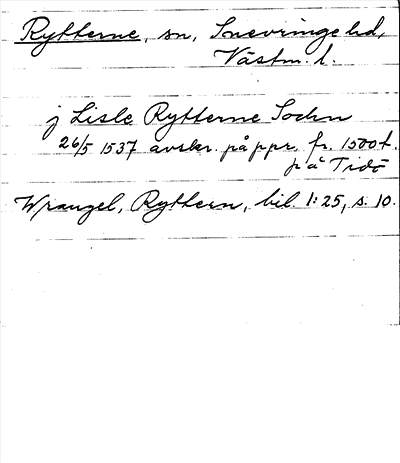 Rytterne, sn, Snevringe hd,
Västm. l.
j Lisle Rytterne Sockn
26/5 1537 avskr. på ppr. fr. 1500t.
på Tidö
Wrangel, Ryttern, bil. 1:25, s. 10.